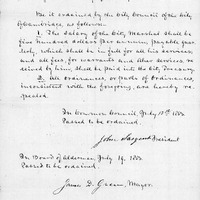 Be it ordained by the City Council of the City
Cambridge, as follows:
1. The Salary of the City Marshal shall be
five hundred dollars per annum, payable quar-
terly, which shall be in full for all his services,
and all fees, for warrants and other services re-
ceived by him, shall be paid into the City Treasury.
2. All ordinances, or parts of ordinances,
inconsistent with the foregoing, are hereby re-
pealed.
In Common Council, July
Passed to be ordained.
John Sargent President
In Board of Aldermen July
Passed to be ordained.
James D. Green, Mayor.